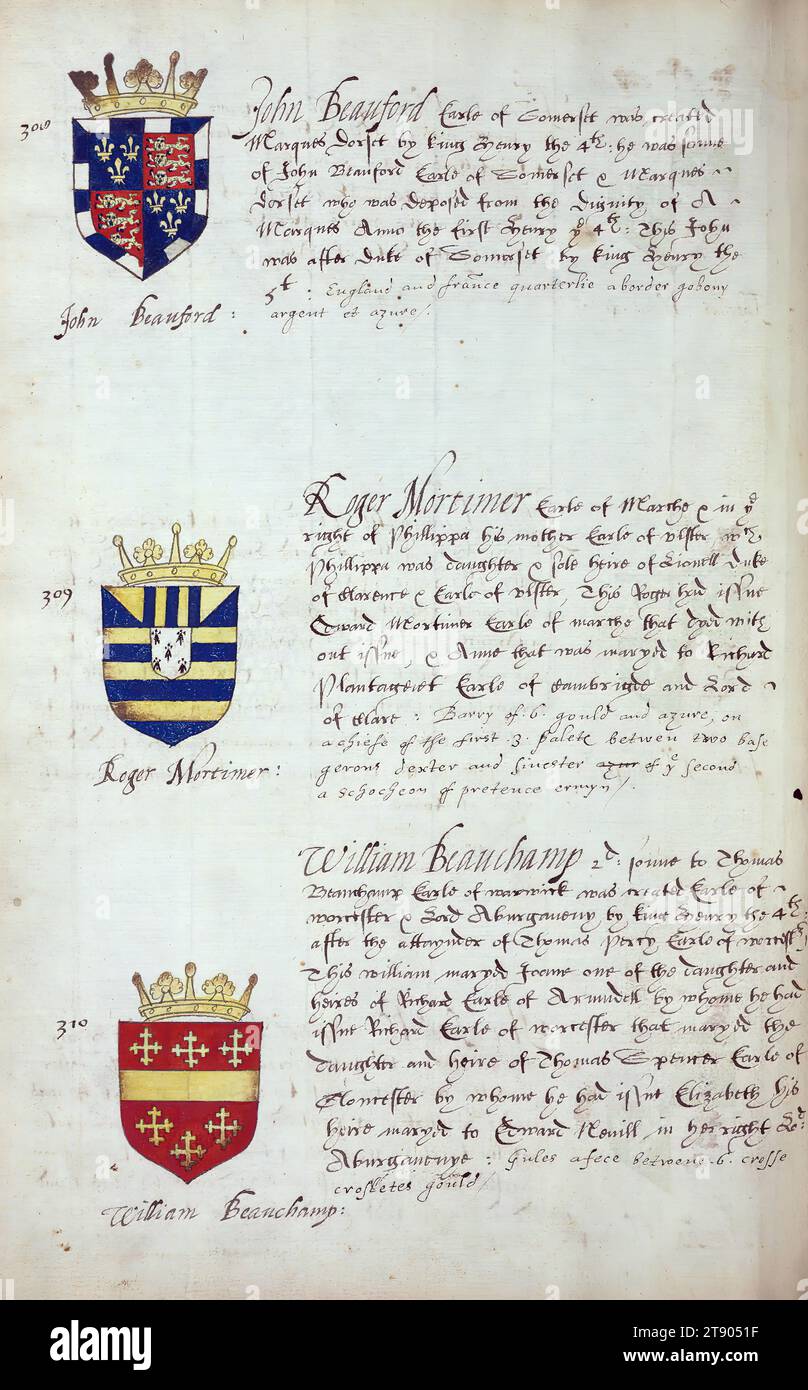 308
John Beauford Earle of Somerset was created
Marques Dorset by king Henry the 4th: he was sonne
of John Beauford Earle of Somerset & Marques
Dorset who was deposed from the Dignity of A
Marques Anno the first Henry ye 4th: This John
was after Duke of Somerset by king Henry the
5t: England and france quarterlie a border gobony
argent et azure/.
John Beauford:
309
Roger Mortimer Earle of Marche & in ye
right of Phillippa his mother Earle of Ulster, wch
Phillippa was daughter & sole heire of Lionell Duke
of Clarence & Earle of Ulster, This Roger had issue
Edward Mortimer Earle of marche that dyed with
out issue, & Anne that was maryed to Richard
Plantagenet Earle of Cambrigde and Lord
of Clare: Barry of .6. gould and azure, on
a chiefe of the first .3. palets betwen two base
gerons dexter and sinester azur of ye second
a schocheon of pretence ermyn/.
Roger Mortimer:
William Beauchamp 2d: sonne to Thomas
Beauchamp Earle of warwick was created Earle of
worcester & Lord Aburgaveny by king Henry the 4th:
after the attaynder of Thomas Percy Earle of worcestr
This william maryed Joane one of the daughter and
heires of Richard Earle of Arundell by whome he had
issue Richard Earle of worcester that maryed the
daughter and heire of Thomas Spencer Earle of
Gloucester by whome he had issue Elizabeth his
heire maryed to Edward Nevill in her right Lrd:
Aburgavenye: Gules a fece betwene .6. crosse
crosletes gould/
310
William Beauchamp:
alamy
alamy
a
a
a
alamy
Image ID: 2T9051F
www.alamy.com